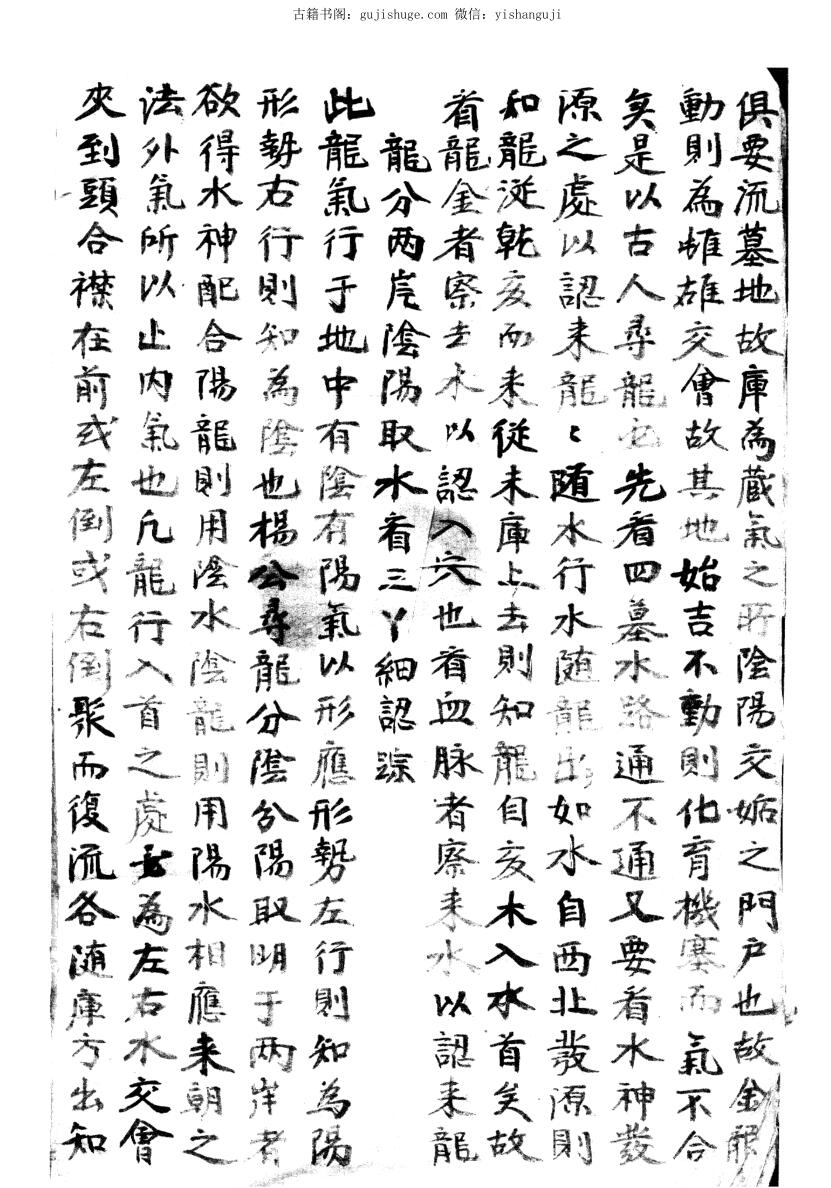 古籍书阁：gujishuge.com 微信：yishanguji
俱要流墓地故庫為蔵氣之所陰陽交姤之門户也故金龍
動則為雌雄交會故其地始吉不動則化育機塞而氣不合
矣是以古人尋龍也先看四墓水路通不通又要看水神發
源之處以認来龍〻随水行水随龍出如水自西北發源則
知龍従乾亥而来從未庫上去則知龍自亥木入水首矣故
看龍金者察去水以認入穴也看血脉者察来水以認来龍
龍分两岸陰陽取水看三丫細認踪
此龍氣行于地中有陰有陽氣以形應形勢左行則知為陽
形勢右行則知為陰也楊公尋龍分陰分陽取明于两岸者
欲得水神配合陽龍則用陰水陰龍則用陽水相應来朝之
法外氣所以止内氣也凡龍行入首之處為左右水交會
夾到頭合襟在前或左倒或右倒聚而復流各随庫方出知